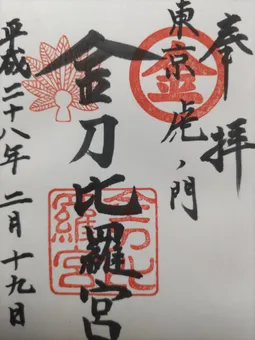 奉拝
東京虎ノ門
金
金刀比羅宮
金刀比
羅宮
平成二十八年二月十九日